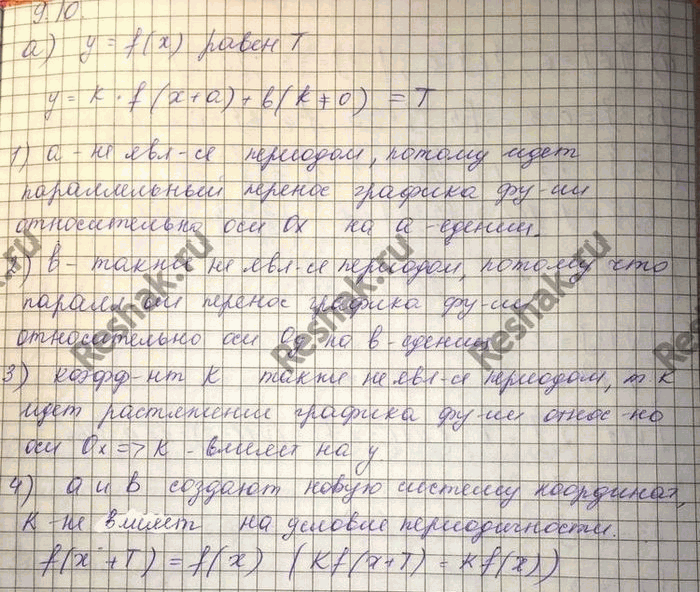 9.10.
а) y = f(x) равен T
y = k · f(x+a) + b (k≠0) = T
1) a - не явл-ся периодом, потому идет
параллельный перенос графика фу-ии
относительно оси Ox на a-едениц.
2) b - также не явл-ся периодом, потому что
паралл-ый перенос графика фу-ии
относительно оси Oy на b-едениц
3) коэфф-нт K также не явл-ся периодом, т.к
идет растяжении графика фу-ии относ-но
оси Ox => K - влияет на y
4) a и b создают новую систему координат,
K - не влияет на условие периодичности.
f(x+T) = f(x) (Kf(x+T) = Kf(x))
Reshak.ru
Reshak.ru
Reshak.ru